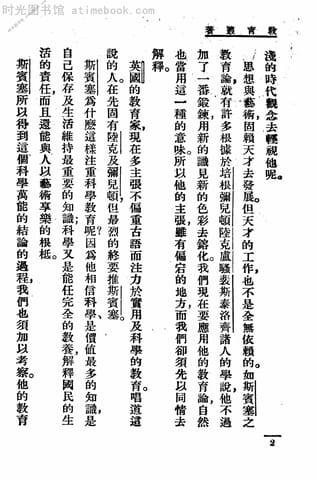 时光图书馆 · atimebook.com
教育叢著
淺的時代觀念去輕視他呢。
思想與藝術，固賴天才去發展。但天才的工作，也不是全無依賴的。如斯賓塞之
教育論，就有許多根據於培根彌兒頓陸克盧騷裴斯泰洛齊諸人的學說，他不過
加了一番鍛鍊，用新的識見新的色彩去鎔化。我們現在要應用他的教育論，自然
也當用這一種的意味。所以他的主張，雖有偏宕的地方，而我們卻須先以同情去
解釋。
英國的教育家，現在多主張不偏重古語而注力於實用及科學的教育。唱道這
說的人，在先固有陸克及彌兒頓，但最烈的終要推斯賓塞。
斯賓塞爲什麼這樣注重科學教育呢？因爲他相信科學、是價值最多的知識，是
自己保存及生活維持最重要的知識；科學又是能任完全的教養，解釋國民的生
活的責任，而且還能與人以藝術享樂的根柢。
斯賓塞所以得到這個科學萬能的結論的過程，我們也須加以考察。他的教育
2